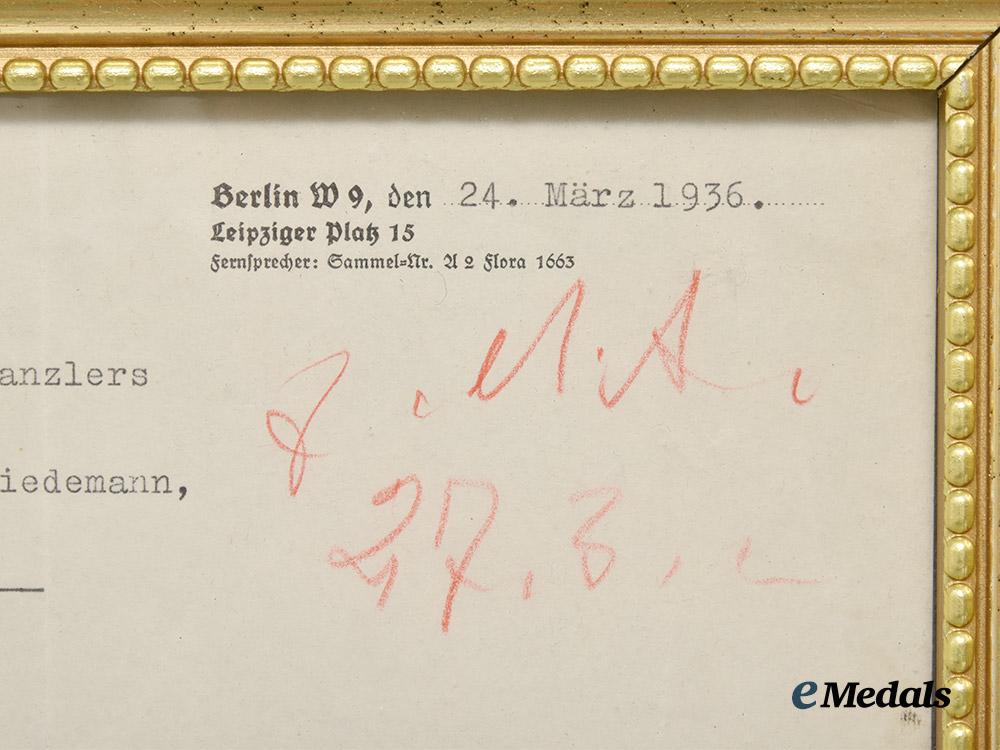 Berlin W 9, den 24. März 1936.
Leipziger Platz 15
Fernsprecher: Sammel-Nr. A 2 Flora 1663
anzlers
iedemann,
27. 3.
eMedals